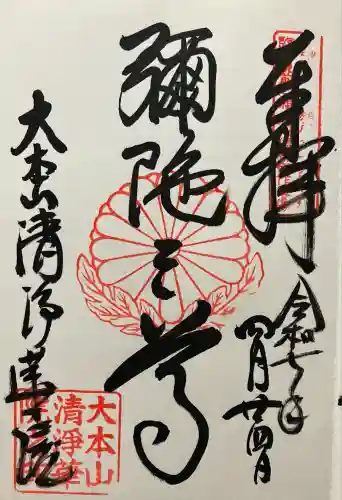 奉拝
令和七年
四月廿四日
彌陀三尊
大本山清浄華院
大本山
清淨華